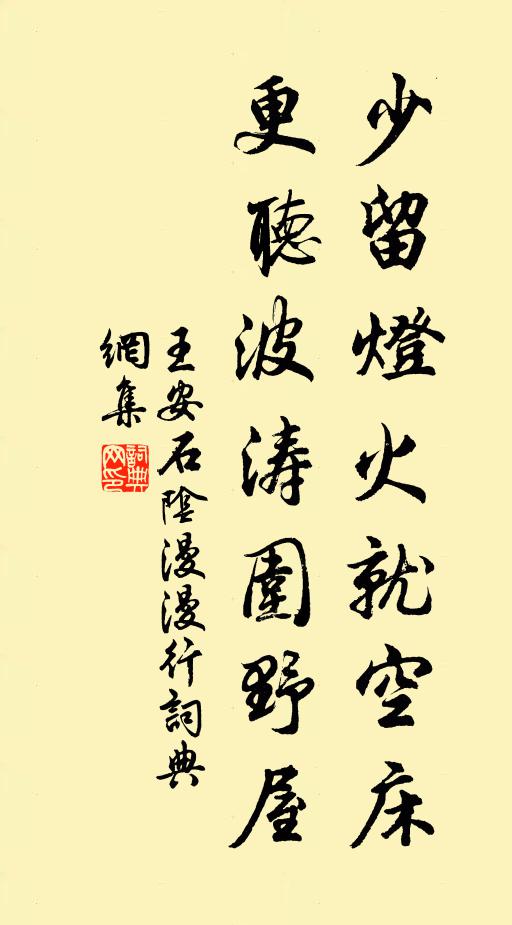 少留燈火就空床
更聽波濤圍野屋
王安石陰漫漫行詞典
網集
詞典
网印